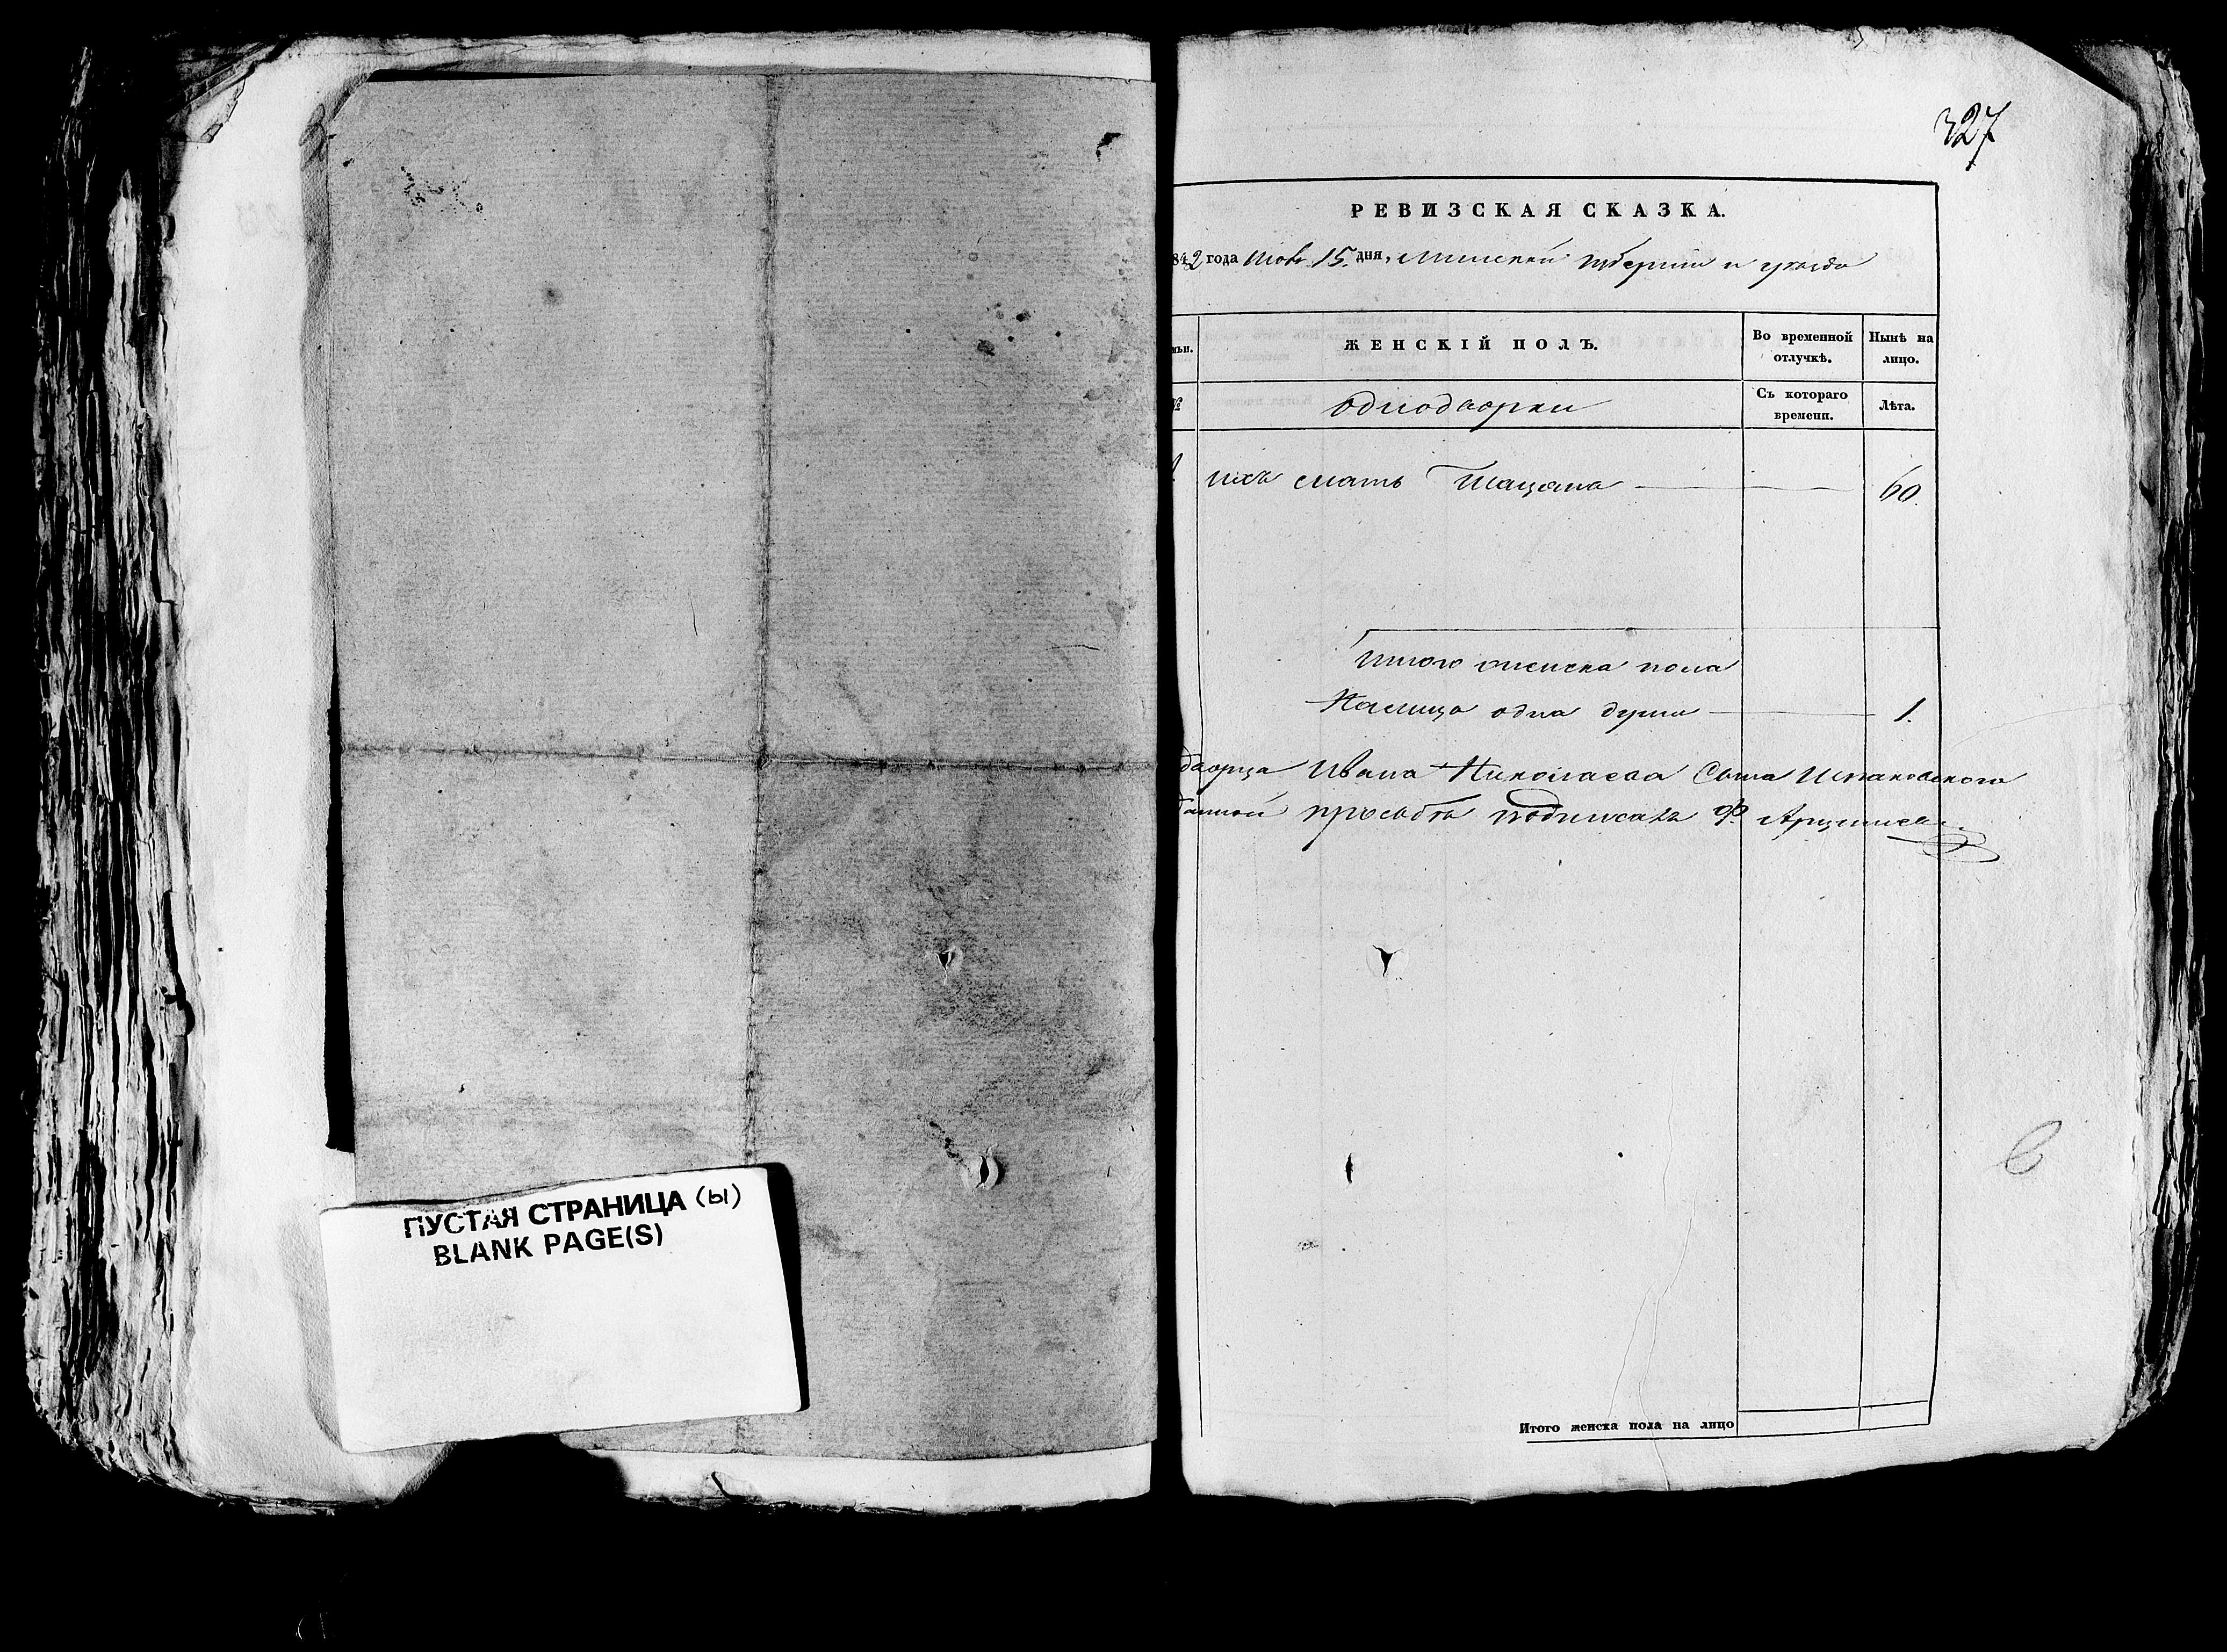 ПУСТАЯ СТРАНИЦА (ы)
BLANK PAGE(S)
327
РЕВИЗСКАЯ СКАЗКА.
842 года 15 дня, Минской губернии и уезда
мьи.
ЖЕНСКІЙ ПОЛЪ.
Во временной отлучкѣ.
Нынѣ на лицо.
№
однодворки
Съ котораго времени.
Лѣта.
ихъ мать Тацяна 60
Итого женска пола
Налицо одна душа 1.
дворца Ивана Николаева Сына
просьбѣ подписалъ Ф.
Итого женска пола на лицо